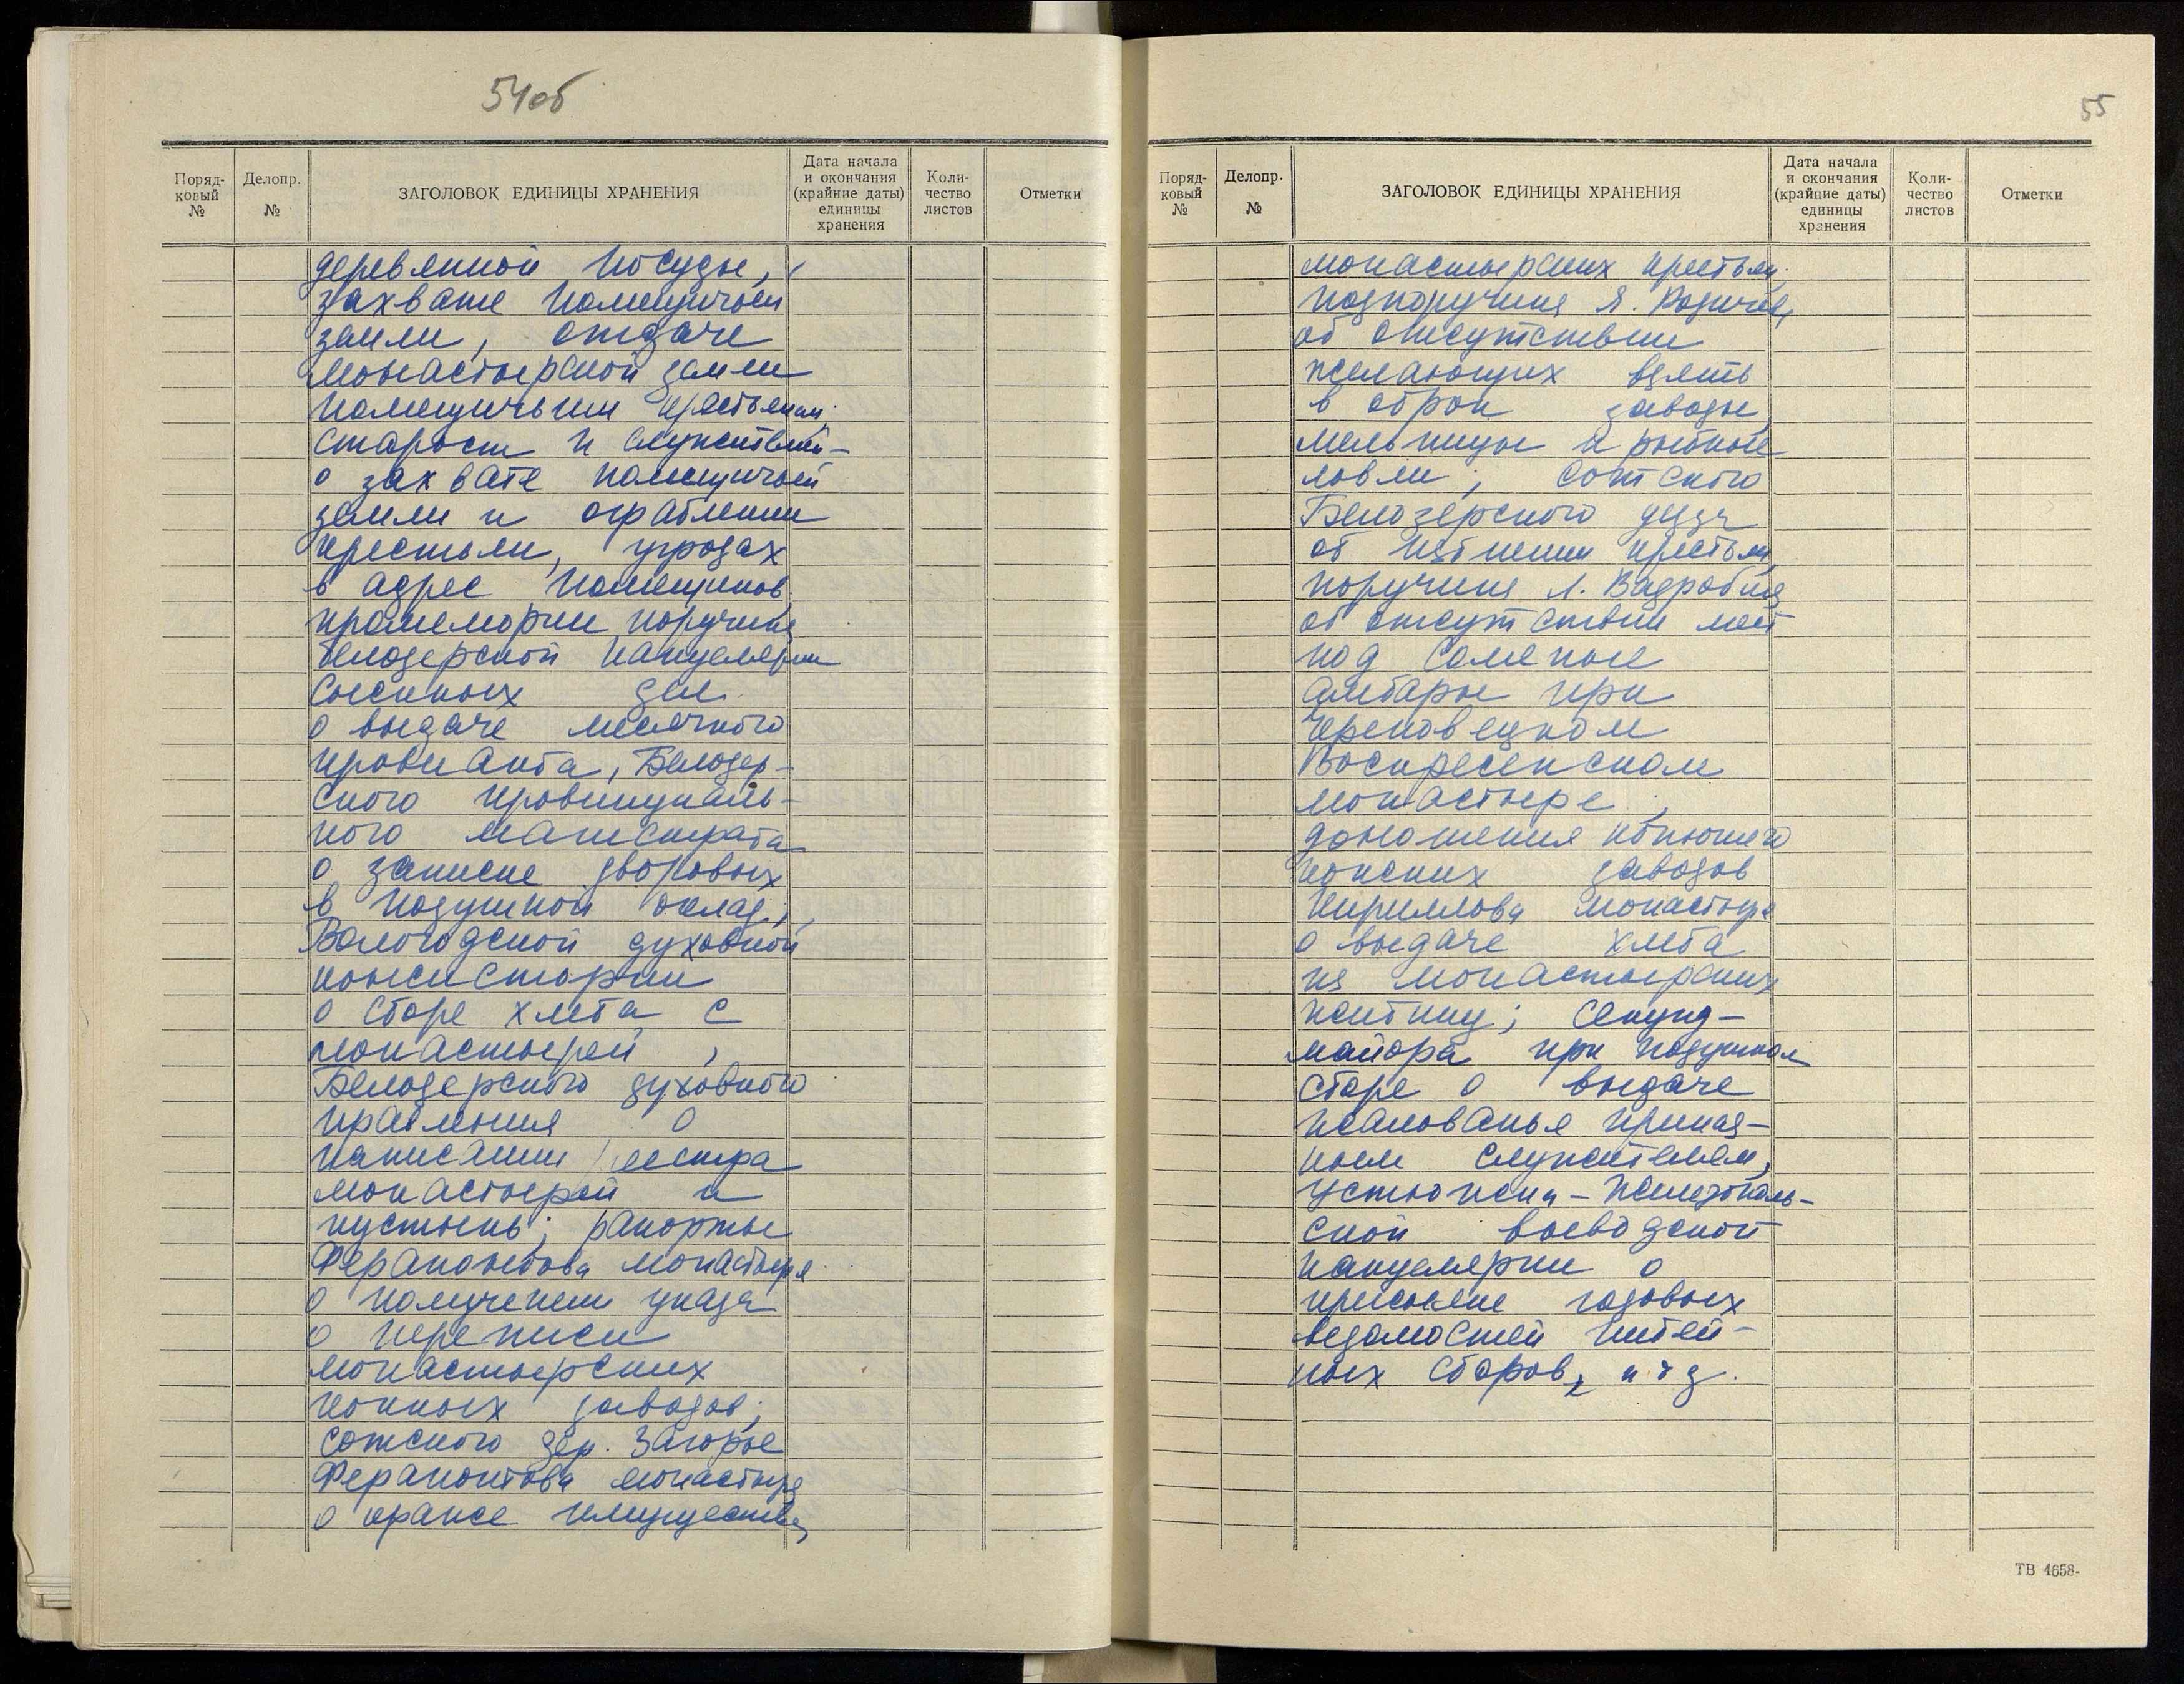 54об
Поряд-
ковый
№
Делопр.
№
ЗАГОЛОВОК ЕДИНИЦЫ ХРАНЕНИЯ
Дата начала
и окончания
(крайние даты)
единицы
хранения
Коли-
чество
листов
Отметки
деревянной посуды,
захвате помещичьей
земли, отдаче
монастырской земли
помещичьим крестьянам;
старост и служителей -
о захвате помещичьей
земли и ограблении
крестьян, угрозах
в адрес помещиков
промемории поручика
белозерской канцелярии
сыскных дел
о выдаче месячного
провианта, Белозер-
ского провинциаль-
ного магистрата
о записке дворовых
в подушной оклад;
Вологодской духовной
консистории
о сборе хлеба с
монастырей,
Белозерского духовного
правления о
написании реестра
монастырей и
пустынь; рапорты
Ферапонтова монастыря
о получении указа
о переписи
монастырских
конных заводов;
сотского дер. Загорье
Ферапонтова монастыря
о краже имущества
55
Поряд-
ковый
№
Делопр.
№
ЗАГОЛОВОК ЕДИНИЦЫ ХРАНЕНИЯ
Дата начала
и окончания
(крайние даты)
единицы
хранения
Коли-
чество
листов
Отметки
монастырских крестьян;
подпоручика Я.
об отсутствии
желающих взять
в оброк заводы,
мельницы и рыбные
ловли; сотского
Белозерского уезда
об избиении крестьян,
поручика Л.
об отсутствии мест
под соляные
амбары при
Череповецком
Воскресенском
монастыре;
доношения конюшего
конских заводов
Кириллова монастыря
о выдаче хлеба
из монастырских
житниц; секунд-
майора при подушном
сборе о выдаче
жалованья приказ-
ным служителям,
Устюжено-Железополь-
ской воеводской
канцелярии о
присылке годовых
ведомостей питей-
ных сборов, и т д.
ТВ 4658-